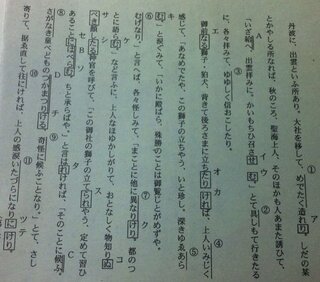 ① ア
丹波に出雲といふ所あり。大社を移して、めでたく造れり。しだの某
とかやしる所なれば、秋のころ、聖海上人、そのほかも人あまた誘ひて、
A イ ウ ②
「いざ給へ、出雲拝みに。かいもちひ召させむ。」とて具しもて行きたる
に、各々拝みて、ゆゆしく信おこしたり。
エ オ カ ④
御前なる獅子・狛犬、背きて後ろさまに立ちたりければ、上人いみじく
感じて、「あなめでたや。この獅子の立ちやう、いと珍し。深きゆゑあら
キ ⑤
む。」と涙ぐみて、「いかに殿ばら、殊勝のことは御覧じとがめずや。
⑥ ク ⑦
むげなり。」と言へば、各々怪しみて、「まことに他に異なりけり。都のつ
コ
とに語らむ。」など言ふに、上人なほゆかしがりて、おとなしく物知りぬ
サ シ ス
べき顔したる神官を呼びて、「この御社の獅子の立てられやう、定めて習ひ
⑧ セ B ソ タ C
あることにはべらむ。ちと承らばや。」と言はれければ、「そのことに候ふ。
チ ⑨
さがなき童べどものつかまつりける、奇怪に候ふことなり。」とて、さし
⑩ ⑪ ツ テ
寄りて、据ゑ直して往にければ、上人の感涙いたづらになりにけり。